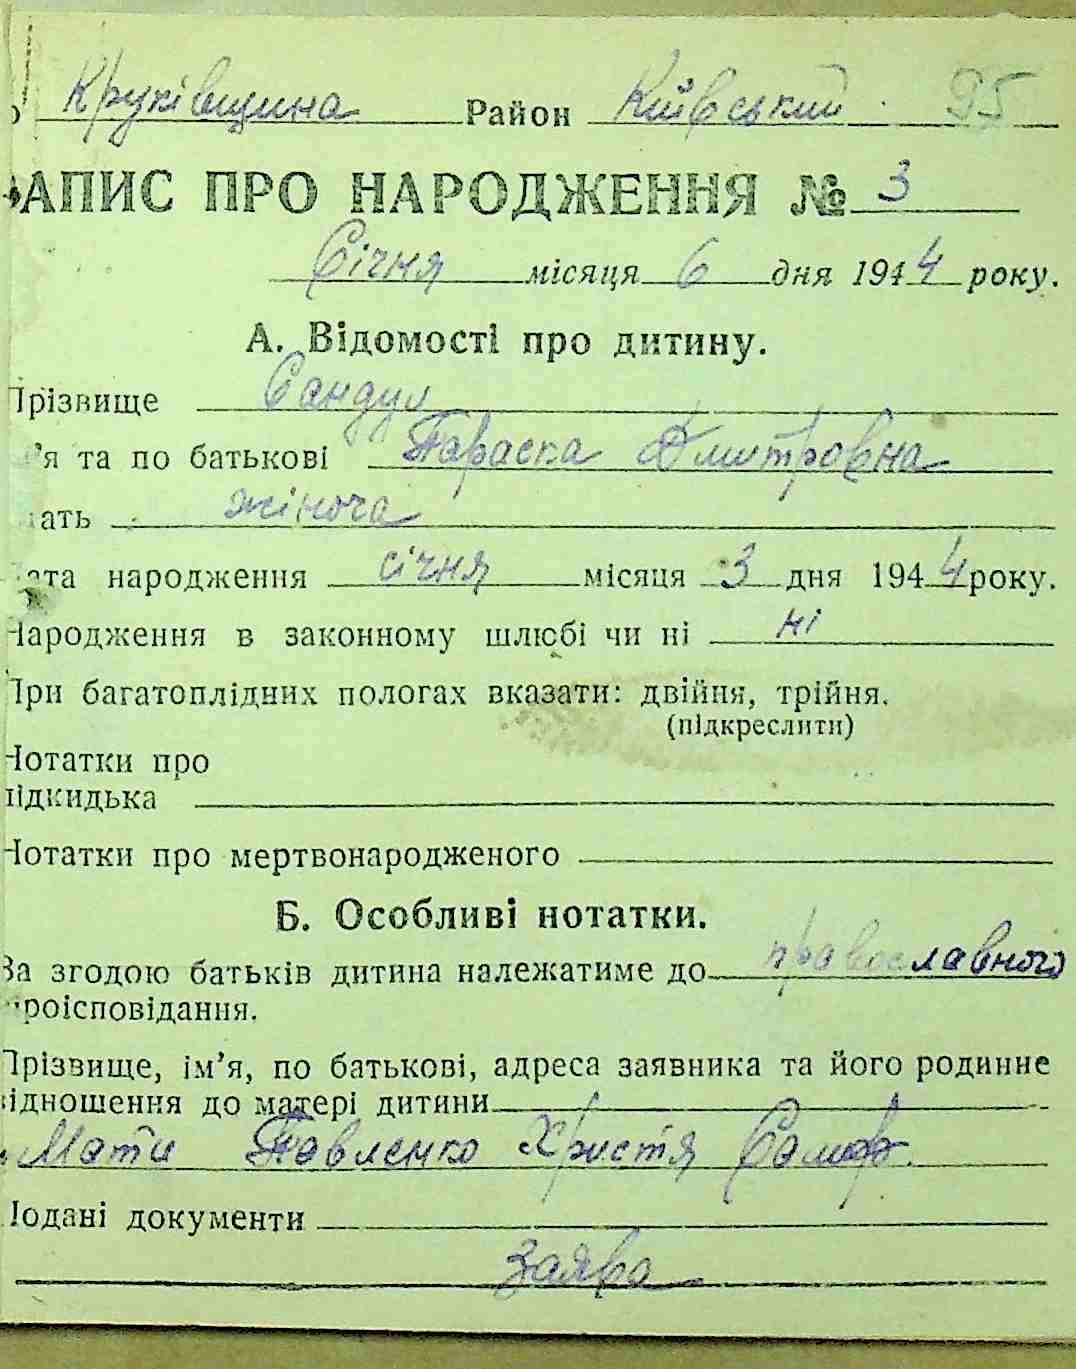 Круківщина Район Київський 95
АПИС ПРО НАРОДЖЕННЯ № 3
Січня місяця 6 дня 1944 року.
А. Відомості про дитину.
Прізвище Сандул
'я та по батькові Параска Дмитровна
ать жіноча
Дата народження січня місяця 3 дня 1944 року.
Народження в законному шлюбі чи ні ні
При багатоплідних пологах вказати: двійня, трійня.
(підкреслити)
Нотатки про
підкидька
Нотатки про мертвонародженого
Б. Особливі нотатки.
За згодою батьків дитина належатиме до православного
роісповідання.
Прізвище, ім'я, по батькові, адреса заявника та його родинне
відношення до матері дитини
Мати Павленко Христя
Подані документи
Заява